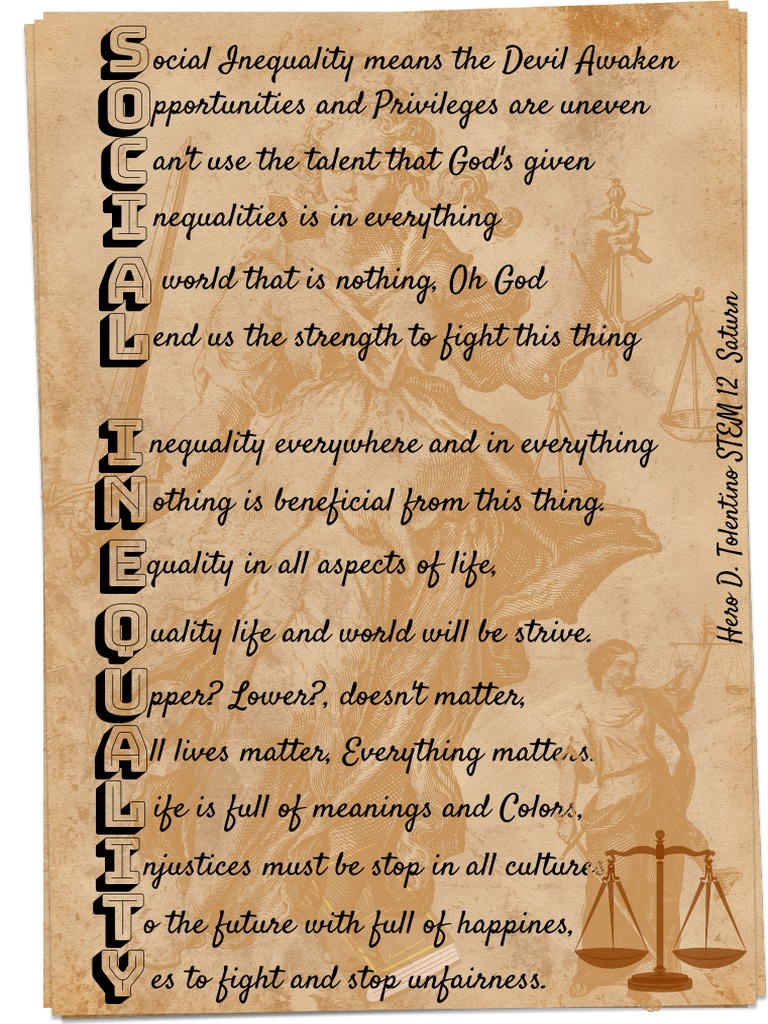 Social Inequality means the Devil Awaken
Opportunities and Privileges are uneven
Can't use the talent that God's given
Inequalities is in everything
A world that is nothing, Oh God
Lend us the strength to fight this thing
Inequality everywhere and in everything
Nothing is beneficial from this thing.
Equality in all aspects of life,
Quality life and world will be strive.
Upper? Lower?, doesn't matter,
All lives matter, Everything matters.
Life is full of meanings and Colors,
Injustices must be stop in all cultures
To the future with full of happines,
Yes to fight and stop unfairness.
Hero D. Tolentino STEM 12 Saturn